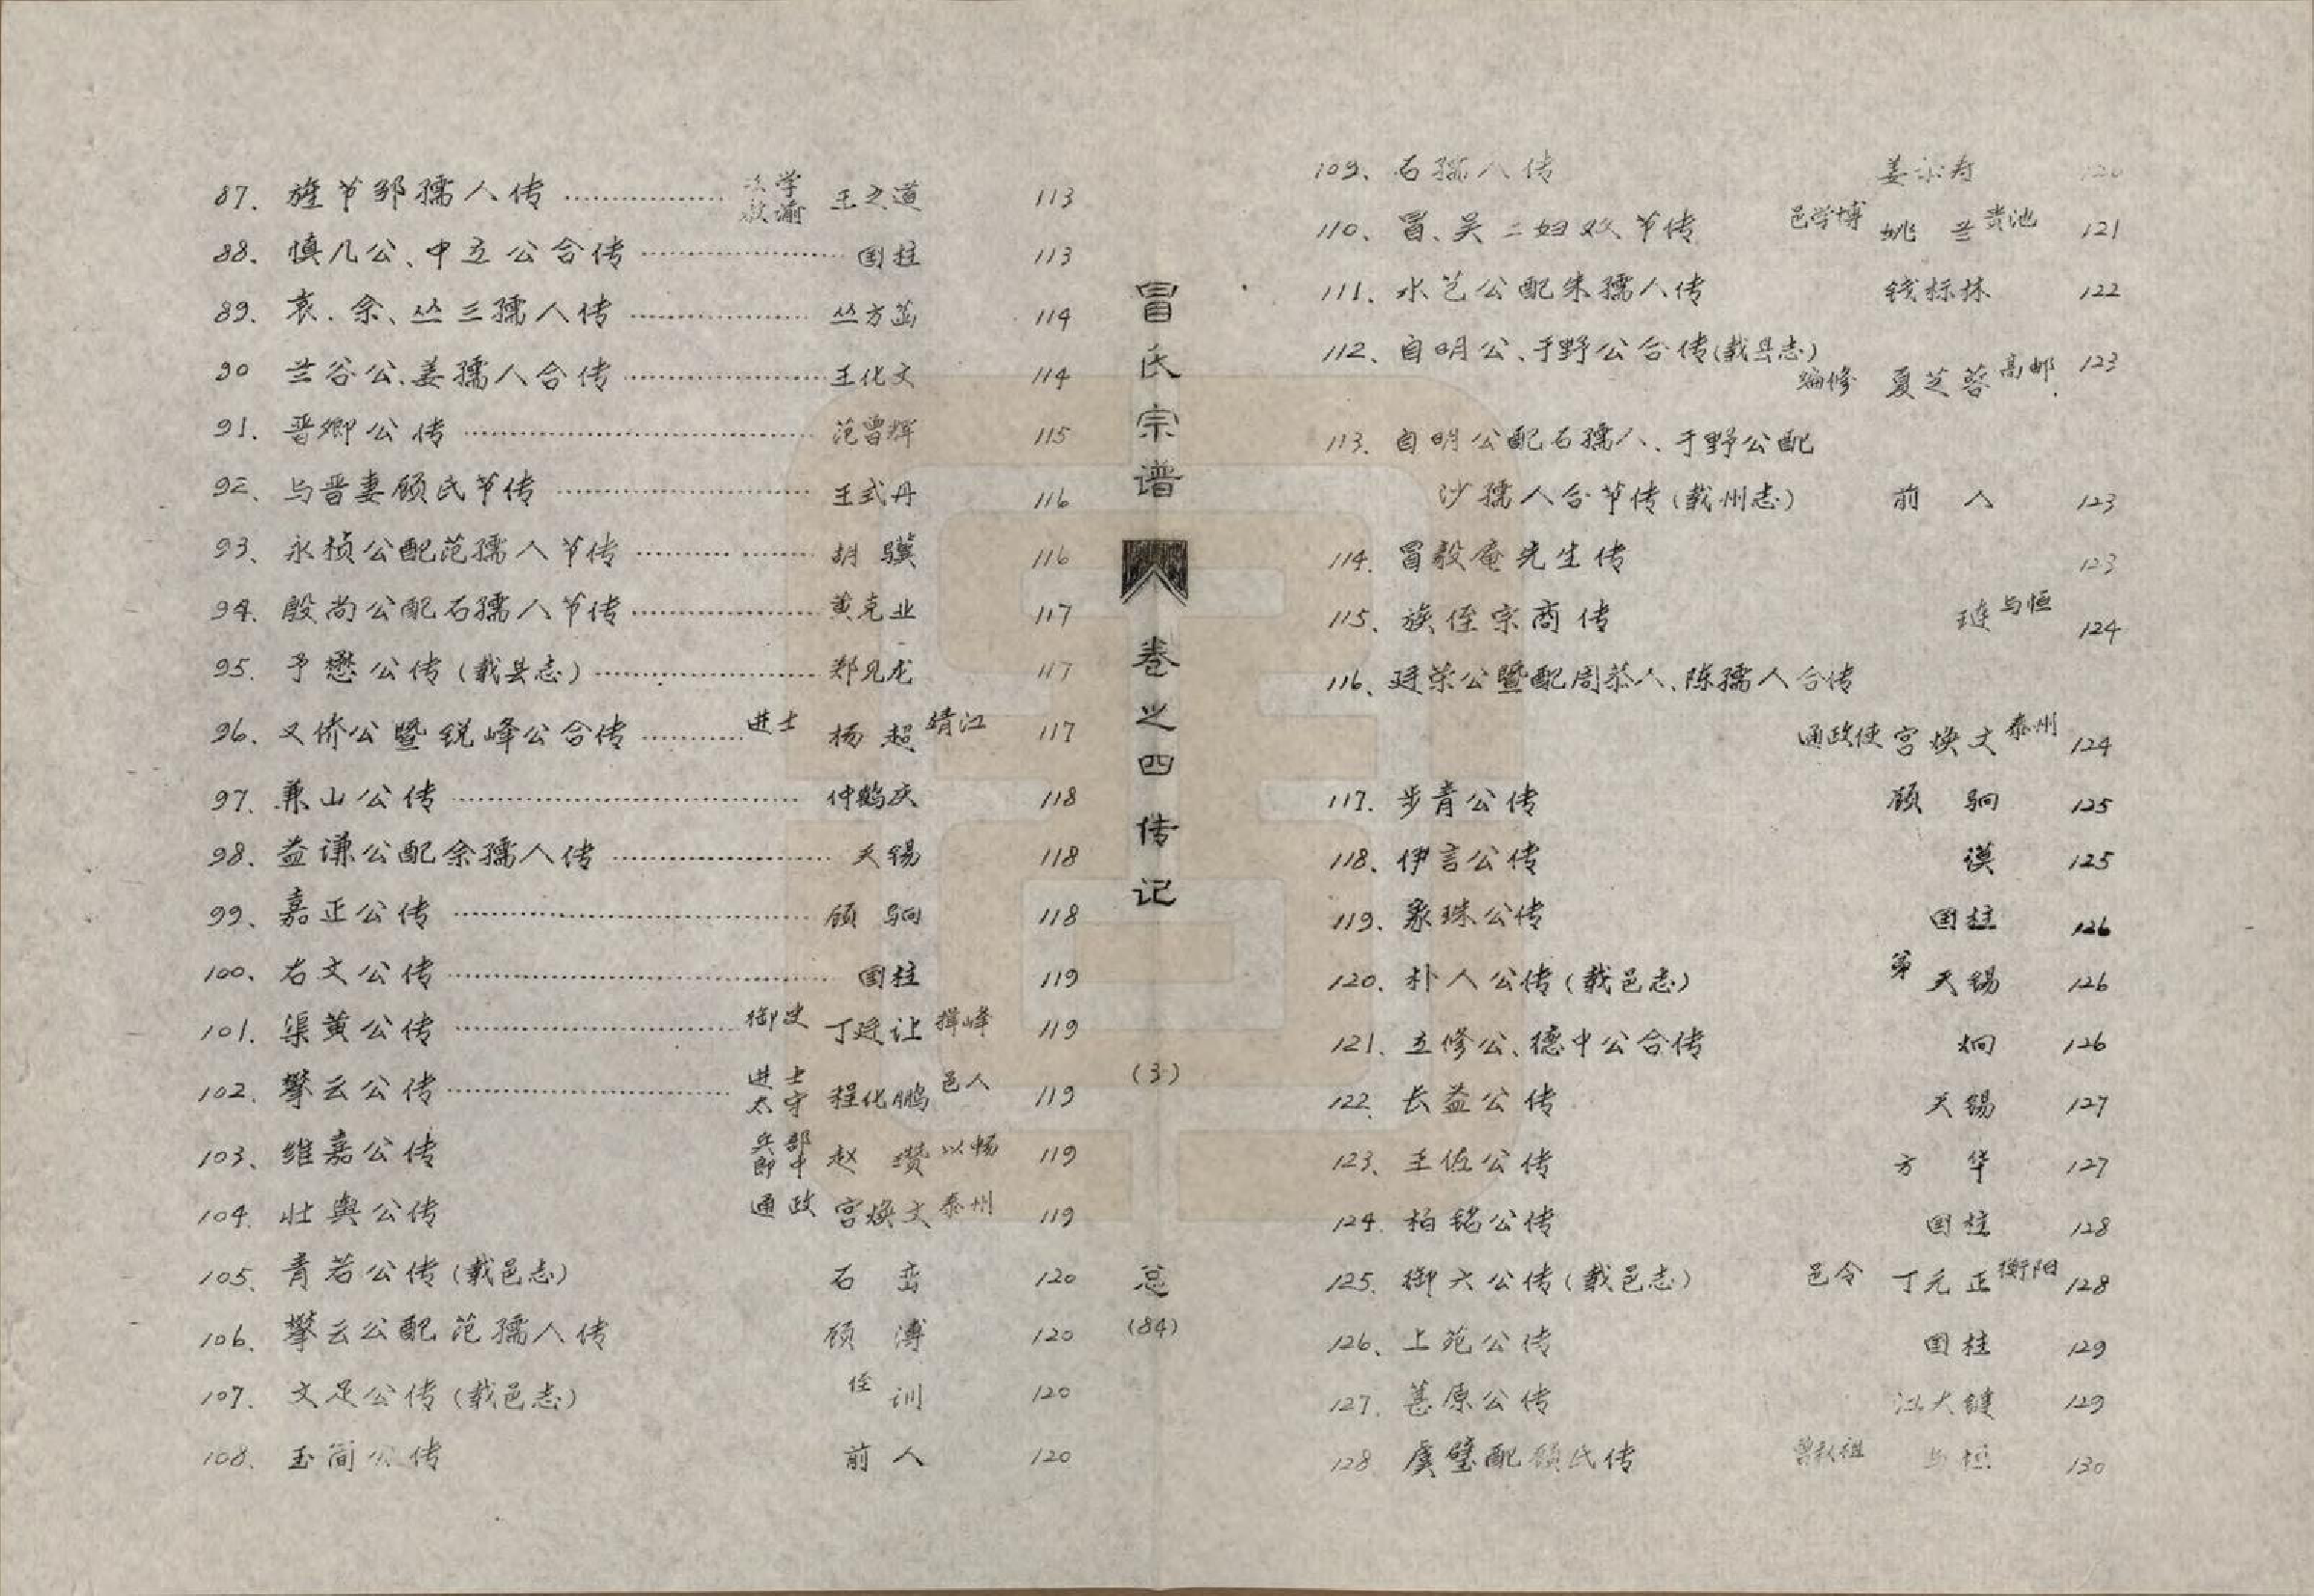 87. 旌节邹孺人传 ……………… 教谕 王之道 113
88. 慎几公、中立公合传 ……………… 国柱 113
89. 袁、余、丛三孺人传 ……………… 丛方菡 114
90 兰谷公、姜孺人合传 ……………… 王化文 114
91. 晋卿公传 ……………… 范曾辉 115
92、与晋妻顾氏节传 ……………… 王式丹 116
93、永桢公配范孺人节传 ……………… 胡骥 116
94. 殷尚公配石孺人节传 ……………… 黄克业 117
95. 予懋公传(载县志) ……………… 郑见龙 117
96、又侨公暨锐峰公合传 ………… 进士 杨超 靖江 117
97. 兼山公传 ……………… 仲鹤庆 118
98. 益谦公配余孺人传 ……………… 天锡 118
99、嘉正公传 ……………… 顾駉 118
100、右文公传 ……………… 国柱 119
101. 渠黄公传 ……………… 御史 丁廷让 擇峰 119
102. 擎云公传 ……………… 进士太守 程化鹏 邑人 119
103、维嘉公传 兵部郎中 赵瓒 以畅 119
104. 壮舆公传 通政 宫焕文 泰州 119
105. 青若公传(载邑志) 石峦 120
106. 擎云公配范孺人传 顾溥 120
107. 文足公传(载邑志) 侄 训 120
108. 玉简公传 前人 120
冒氏宗谱 卷之四 传记
(3)
总
(84)
109、石孺人传 120
110、冒、吴二妇双节传 邑学博 姚兰 贵池 121
111、水艺公配朱孺人传 钱标林 122
112、自明公、于野公合传(载县志)
编修 夏芝蓉 高邮 123
113. 自明公配石孺人、于野公配
沙孺人合节传(载州志) 前人 123
114. 冒毅庵先生传 123
115、族侄宗商传 琏 与恒 124
116、廷荣公暨配周恭人、陈孺人合传
通政使 宫焕文 泰州 124
117. 步青公传 顾駉 125
118、伊言公传 谟 125
119、象珠公传 国柱 126
120. 朴人公传(载邑志) 弟 天锡 126
121. 立修公、德中公合传 炯 126
122. 长益公传 天锡 127
123、王佐公传 方华 127
124. 柏铭公传 国柱 128
125. 御六公传(载邑志) 邑令 丁元正 衡阳 128
126、上苑公传 国柱 129
127. 善原公传 129
128 虞璧配顾氏传 曾叔祖 与恒 130